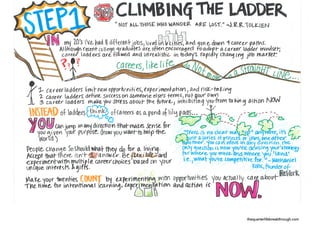 STEP 1
CLIMBING THE LADDER
"NOT ALL THOSE WHO WANDER ARE LOST." ~J.R.R. TOLKIEN
IN my 20's I've had 8 different jobs, lived in 4 cities, and gone down 4 career paths.
Although recent college graduates are often encouraged to adopt a career ladder mindset,
career ladders are flawed and unrealistic in today's rapidly changing job market.
?!?!
Careers, like life, are NOT a straight line...
1 career ladders limit new opportunities, experimentation, and risk-taking
2 career ladders define success on someone else's terms, not your own
3 career ladders make you stress about the future, inhibiting you from taking action NOW
INSTEAD of ladders, think of careers as a pond of lily pads...
YOU can jump in any direction that makes sense for you given your purpose (how you want to help the world).
People change. So should what they do for a living.
Accept that there isn't answer. Be and experiment with multiple career choices based on your unique interests & gifts.
"There is no clear way 'up' anymore, it's just a series of stones or plans, one after another. You can lead in any direction. The only question is how you're devising your strategy for where you move and where you 'land' i.e., what you're competitive for." ~ Nathaniel
Founder of ReWork
Make your twenties COUNT by experimenting with opportunities you actually care about.
The time for intentional learning, experimentation and action is NOW.
thequarterlifebreakthrough.com